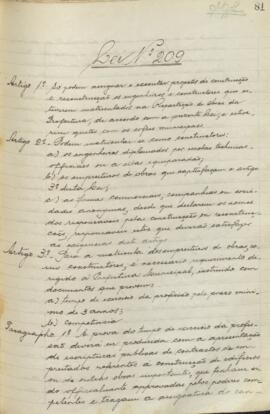 81
Lei Nº 209
Artigo 1º. Só podem assignar e executar projectos de construcção
e reconstrucção os engenheiros e constructores que es-
tiverem matriculados na Repartição de Obras da
Prefeitura, de accordo com a presente Lei, e estive-
rem quites com os cofres municipaes.
Artigo 2º. Podem matricular-se como constructores:
a) os engenheiros diplomados por escolas technicas
officiaes ou a ellas equiparadas;
b) os empreiteiros de obras que satisfaçam o artigo
3º desta Lei;
c) as firmas commerciaes, companhias ou socie-
dades anonymas, desde que declarem os nomes
dos responsaveis pelas construcções ou reconstruc-
ções, responsaveis estes que deverão satisfazer
as exigencias deste artigo.
Artigo 3º. Para a matricula dos empreiteiros de obras, co-
mo constructores, é necessario requerimento di-
rigido á Prefeitura Municipal, instruido com
documentos que provem:
a) tempo de exercicio da profissão pelo prazo mini-
mo de 3 annos;
b) competencia.
Paragrapho 1º. A prova do tempo de exercicio da profis-
são deverá ser produzida com a apresentação
de escripturas publicas de contractos de em-
preitadas referentes a construcção de edificios
ou de outras obras importantes, que tenham si-
do officialmente approvadas pelos poderes com-
petentes e tragam a assignatura do can-